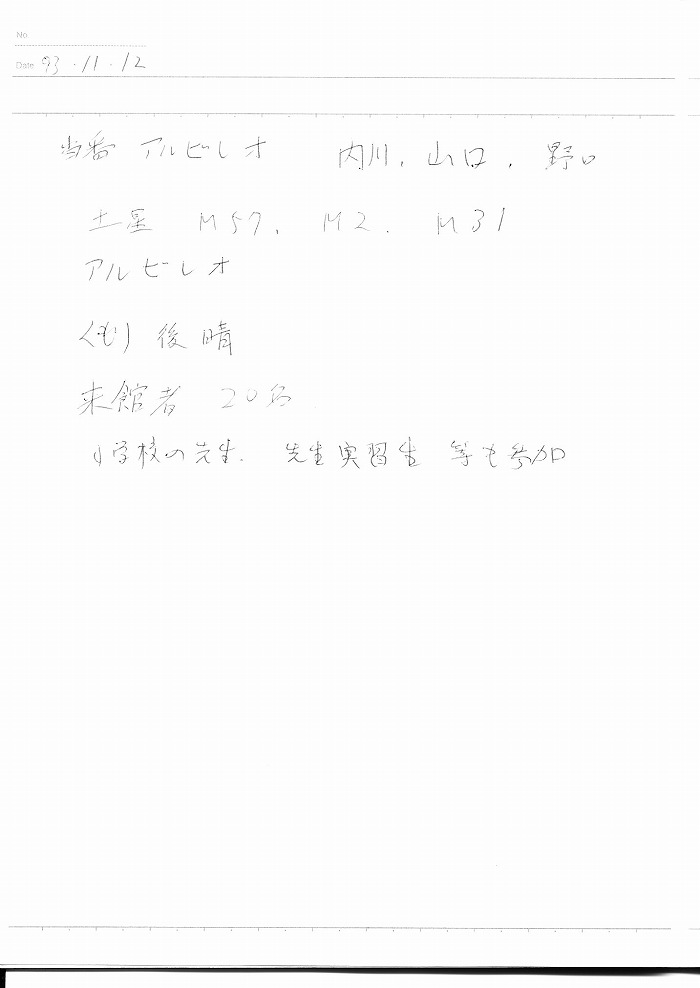 No.
Date 93・11・12
当番 アルビレオ 内川, 山口, 野口
土星 M57, M2, M31
アルビレオ
くもり 後 晴
来館者 20名
小学校の先生. 先生実習生 等も参加